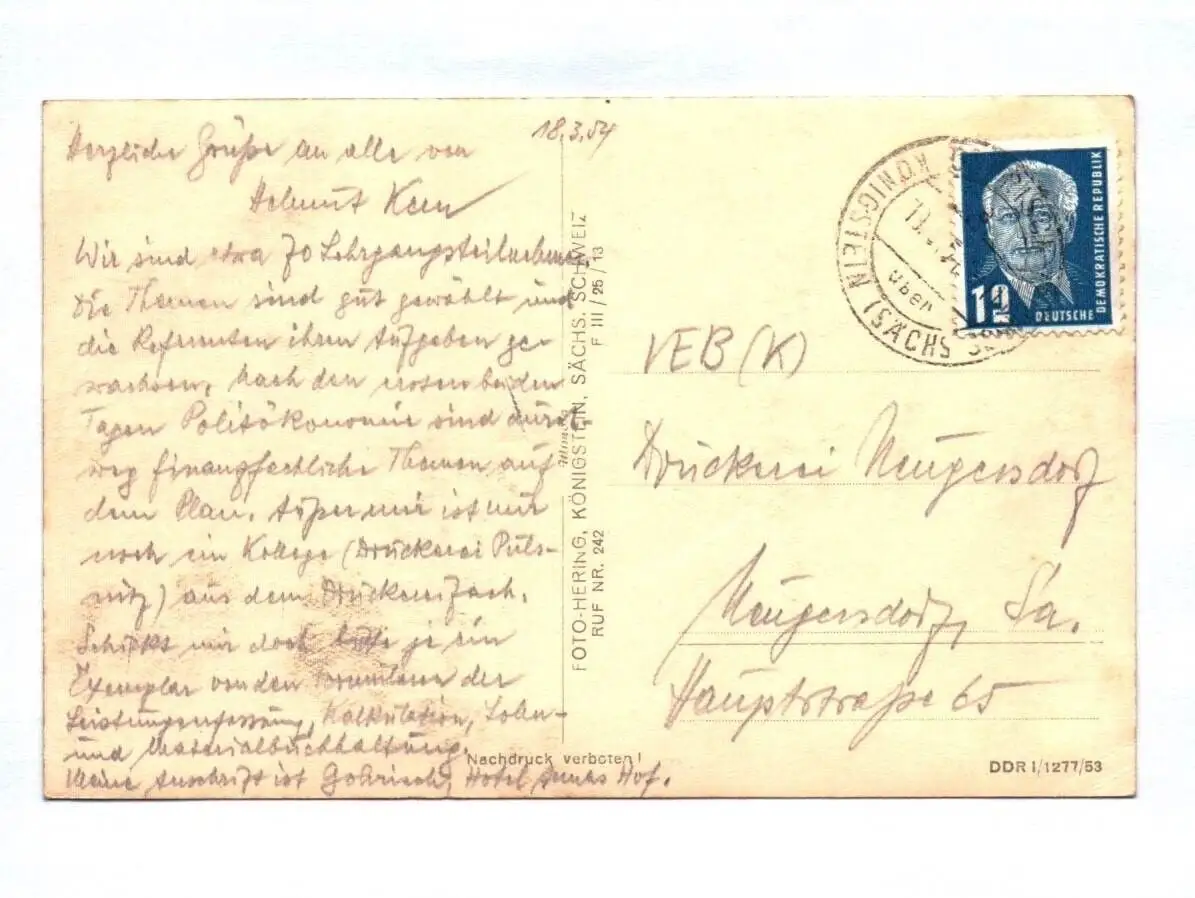 18.3.54
Herzliche Grüße an alle von
Helmut
Wir sind etwa 70 Lehrgangsteilnehmer
Die Themen sind gut gewählt und
die Referenten ihren Aufgaben ge-
wachsen, nach den ersten beiden
Tagen Politökonomie sind durch-
weg finanzfachliche Themen auf
dem Plan. Außer mir ist nur
noch ein Kollege (Druckerei Puls-
nitz) aus dem Druckereifach.
Schickt mir doch bitte je ein
Exemplar von den Formularen der
Leistungserfassung, Kalkulation, Lohn-
und Materialbuchhaltung.
Meine Anschrift ist Gohrisch, Hotel Hof.
FOTO-HERING, KÖNIGSTEIN, SÄCHS. SCHWEIZ
RUF NR. 242
F III/25/13
Nachdruck verboten!
KÖNIGSTEIN (SÄCHS
über
12
DEUTSCHE DEMOKRATISCHE REPUBLIK
VEB (K)
Druckerei Neugersdorf
Neugersdorf, Sa.
Hauptstraße 65
DDR I/1277/53